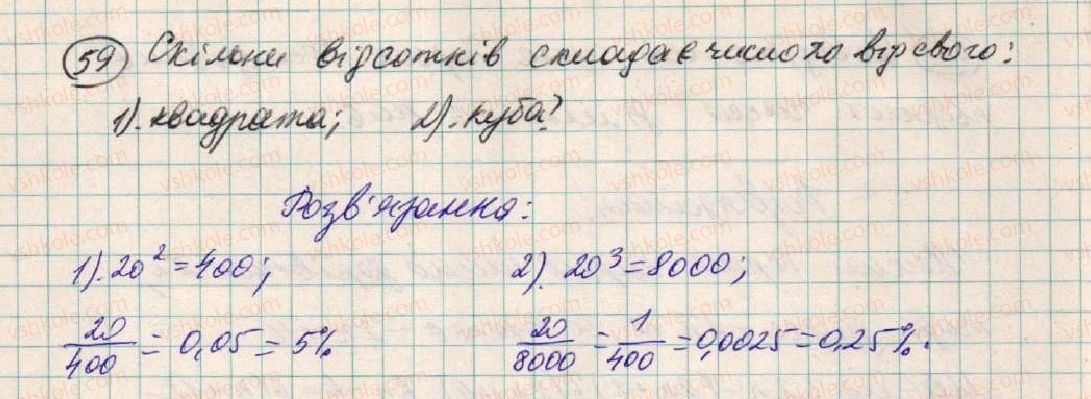 59 Скільки відсотків складає число 20 від свого:
1). квадрата; 2). куба?
Розв'язання:
1). 20² = 400; 2). 20³ = 8000;
20/400 = 0,05 = 5% 20/8000 = 1/400 = 0,0025 = 0,25%.